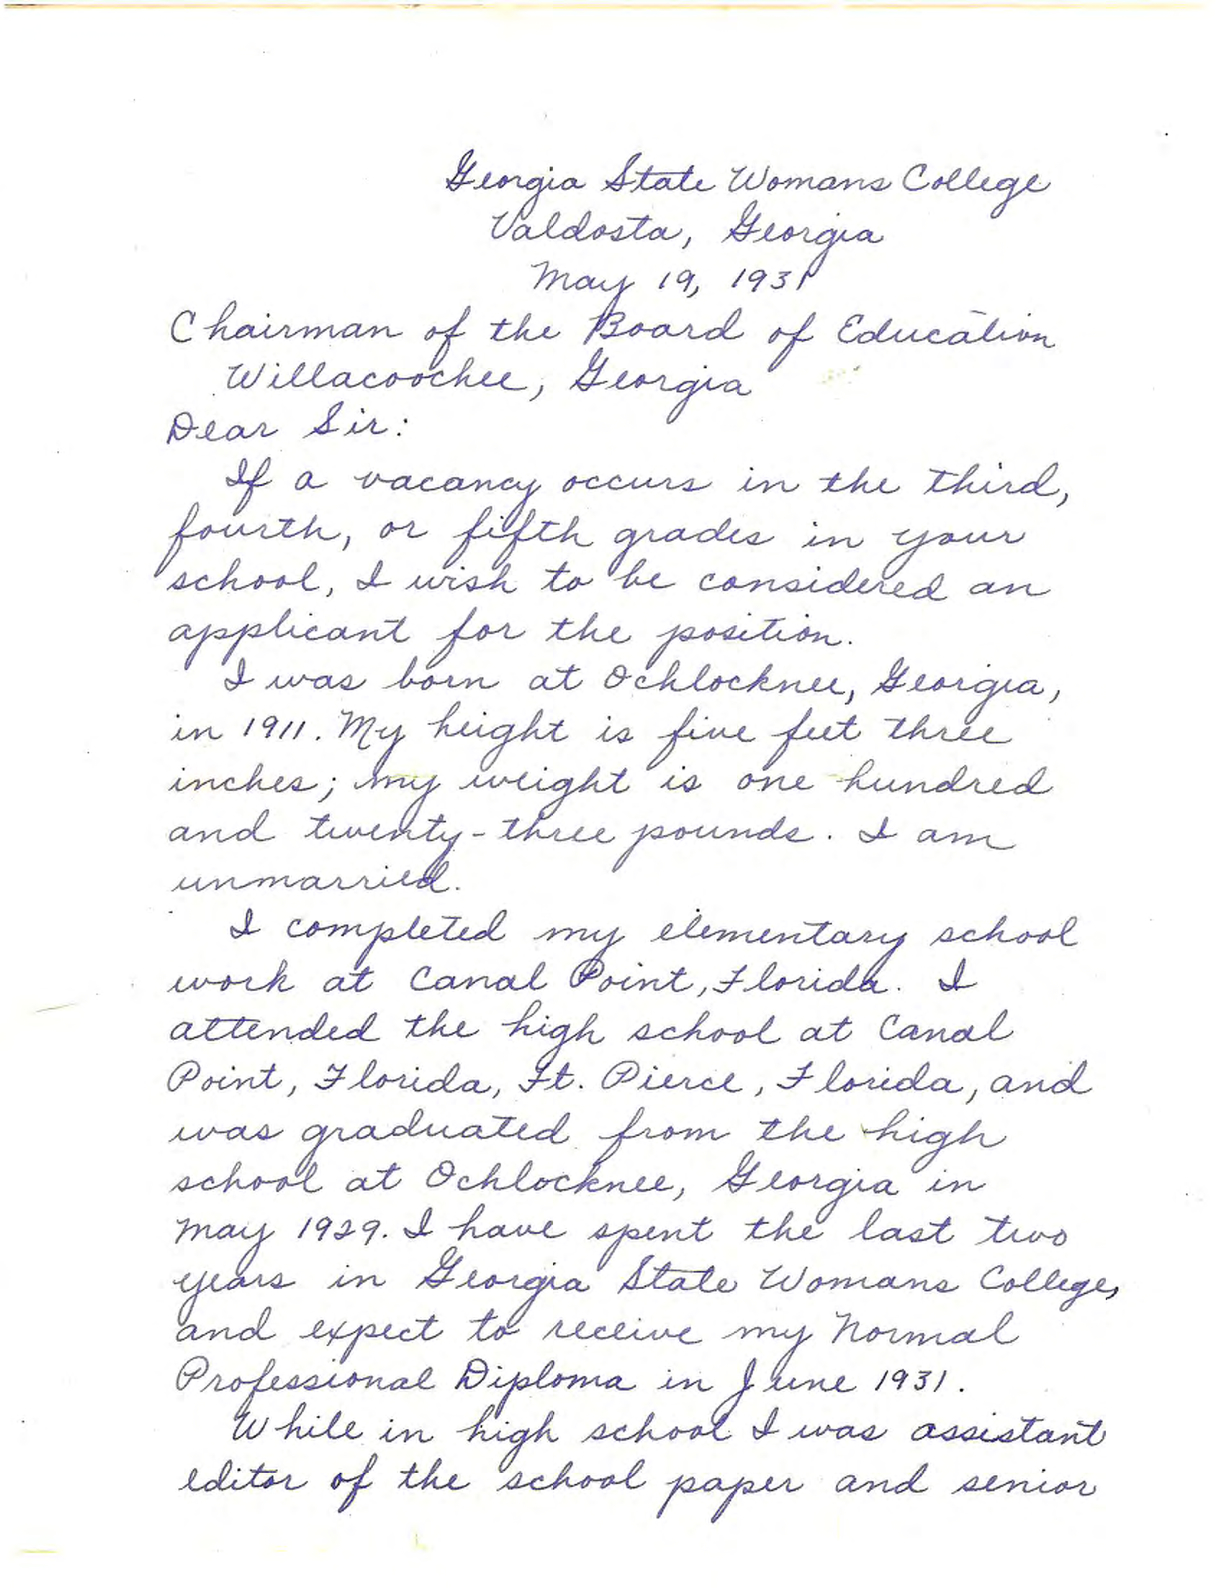 Georgia State Womans College
Valdosta, Georgia
May 19, 1931
Chairman of the Board of Education
Willacoochee, Georgia
Dear Sir:
If a vacancy occurs in the third,
fourth, or fifth grades in your
school, I wish to be considered an
applicant for the position.
I was born at Ochlocknee, Georgia,
in 1911. My height is five feet three
inches; my weight is one hundred
and twenty-three pounds. I am
unmarried.
I completed my elementary school
work at Canal Point, Florida. I
attended the high school at Canal
Point, Florida, Ft. Pierce, Florida, and
was graduated from the high
school at Ochlocknee, Georgia in
May 1929. I have spent the last two
years in Georgia State Womans College,
and expect to receive my Normal
Professional Diploma in June 1931.
While in high school I was assistant
editor of the school paper and senior